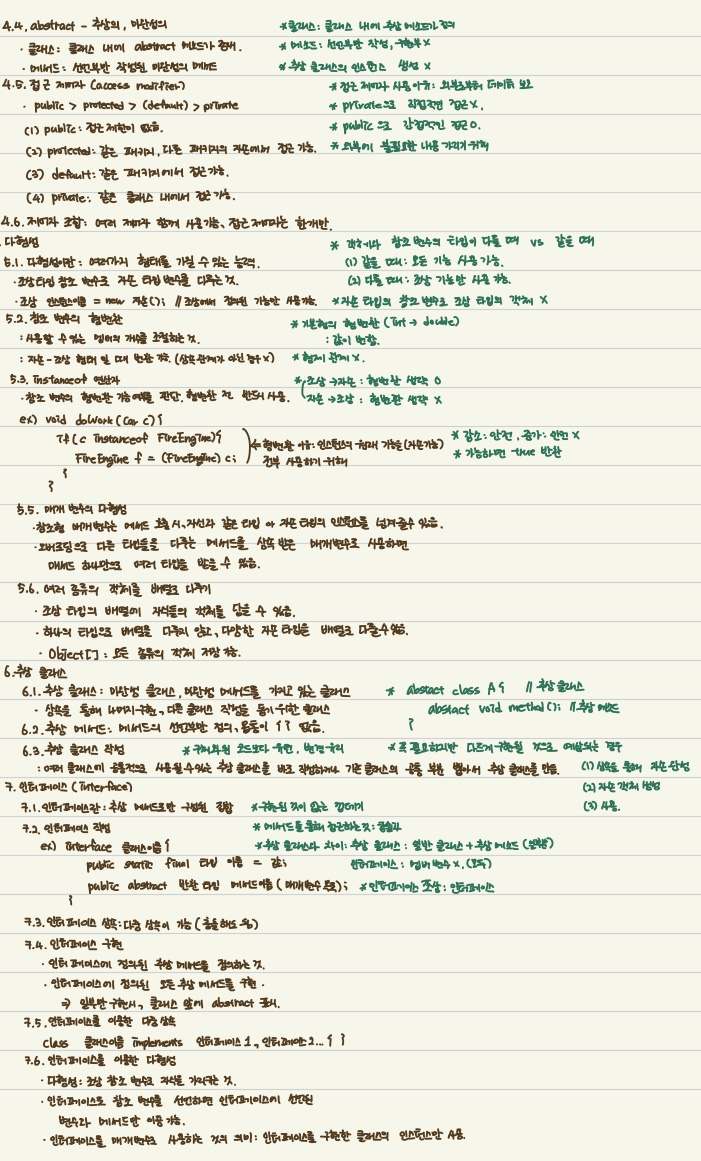 4.4. abstract - 추상의, 미완성의 *클래스: 클래스 내에 추상 메소드가 존재
· 클래스: 클래스 내에 abstract 메소드가 존재. * 메소드: 선언부만 작성, 구현부 X
· 메서드: 선언부만 작성된 미완성의 메서드 * 추상 클래스의 인스턴스 생성 X
4.5. 접근 제어자 (access modifier) * 접근 제어자 사용이유: 외부로부터 데이터 보호
· public > protected > (default) > private * private으로 직접적인 접근 X.
(1) public: 접근 제한이 없음. * public으로 간접적인 접근 O.
(2) protected: 같은 패키지, 다른 패키지의 자손에서 접근 가능. * 외부에 불필요한 내용 가리기 위해
(3) default: 같은 패키지에서 접근가능.
(4) private: 같은 클래스 내에서 접근가능.
4.6. 제어자 조합: 여러 제어자 함께 사용가능, 접근 제어자는 한개만.
다형성 * 객체와 참조 변수의 타입이 다를 때 vs 같을 때
5.1. 다형성이란: 여러가지 형태를 가질 수 있는 능력. (1) 같을 때: 모든 기능 사용 가능.
· 조상타입 참조 변수로 자손 타입 변수를 다루는 것. (2) 다를 때: 조상 기능만 사용 가능.
· 조상 인스턴스이름 = new 자손(); // 조상에서 정의된 기능만 사용가능. *자손 타입의 참조변수로 조상 타입의 객체 X
5.2. 참조 변수의 형변환 * 기본형의 형변환 (int → double)
: 사용할 수 있는 멤버의 개수를 조절하는 것. : 값이 변함.
: 자손-조상 형태 일 때 변환 가능. (상속관계가 아닌 경우 X) * 형제 관계 X.
5.3. instanceof 연산자 * 조상 → 자손 : 형변환 생략 O
· 참조 변수의 형변환 가능여부를 판단. 형변환 전 반드시 사용. 자손 → 조상 : 형변환 생략 X
ex) void doWork(Car c){
if(c instanceof FireEngine){ ← 형변환 이유: 인스턴스의 원래 기능을 (자손기능) * 감소: 안전, 증가: 안전 X
FireEngine f = (FireEngine) c; 전부 사용하기 위해 * 가능하면 true 반환
}
}
5.5. 매개 변수의 다형성
· 참조형 매개변수는 메서드 호출 시, 자신과 같은 타입 or 자손 타입의 인스턴스를 넘겨줄수 있음.
· 오버로딩으로 다른 타입들을 다루는 메서드를 상속 받은 매개변수로 사용하면
메서드 하나만으로 여러 타입을 받을 수 있음.
5.6. 여러 종류의 객체를 배열로 다루기
· 조상 타입의 배열에 자식들의 객체를 담을 수 있음.
· 하나의 타입으로 배열을 다루지 않고, 다양한 자손 타입을 배열로 다룰수있음.
· Object[] : 모든 종류의 객체 저장 가능.
6. 추상 클래스
6.1. 추상 클래스: 미완성 클래스, 미완성 메서드를 가지고 있는 클래스 * abstact class A{ // 추상 클래스
· 상속을 통해 나머지구현, 다른 클래스 작성을 돕기 위한 클래스 abstact void method(); // 추상 메소드
6.2. 추상 메서드: 메서드의 선언부만 정의, 몸통이 { } 없음. }
6.3. 추상 클래스 작성 * 구체화된 코드보다 유연, 변경유리 * 꼭 필요하지만 다르게 구현될 것으로 예상되는 경우
: 여러 클래스에 공통적으로 사용될수있는 추상 클래스를 바로 작성하거나 기존클래스의 공통 부분 뽑아서 추상 클래스를 만듦. (1) 상속을 통해 자손 완성
7. 인터페이스 (Interface) (2) 자손 객체 생성
7.1. 인터페이스란: 추상 메서드로만 구성된 집합 *구현된 것이 없는 껍데기 (3) 사용.
7.2. 인터페이스 작성 * 메서드를 통해 접근하는 것: 캡슐화
ex) interface 클래스이름 { *추상 클래스와 차이: 추상 클래스 : 일반 클래스 + 추상 메소드 (일부)
public static final 타입 이름 = 값; 인터페이스 : 멤버변수 X. (모두)
public abstract 반환 타입 메서드이름 ( 매개변수 목록); *인터페이스 조상: 인터페이스
}
7.3. 인터페이스 상속: 다중 상속이 가능 ( 충돌해도 ok)
7.4. 인터페이스 구현
· 인터페이스에 정의된 추상 메서드를 정의하는 것.
· 인터페이스에 정의된 모든 추상 메서드를 구현.
⇒ 일부만 구현시, 클래스 앞에 abstract 표시.
7.5. 인터페이스를 이용한 다중상속
class 클래스이름 implements 인터페이스1, 인터페이스2... { }
7.6. 인터페이스를 이용한 다형성
· 다형성: 조상 참조 변수로 자식을 가리키는 것.
· 인터페이스로 참조 변수를 선언하면 인터페이스에 선언된
변수와 메서드만 이용 가능.
· 인터페이스를 매개변수로 사용하는 것의 의미: 인터페이스를 구현한 클래스의 인스턴스만 사용.